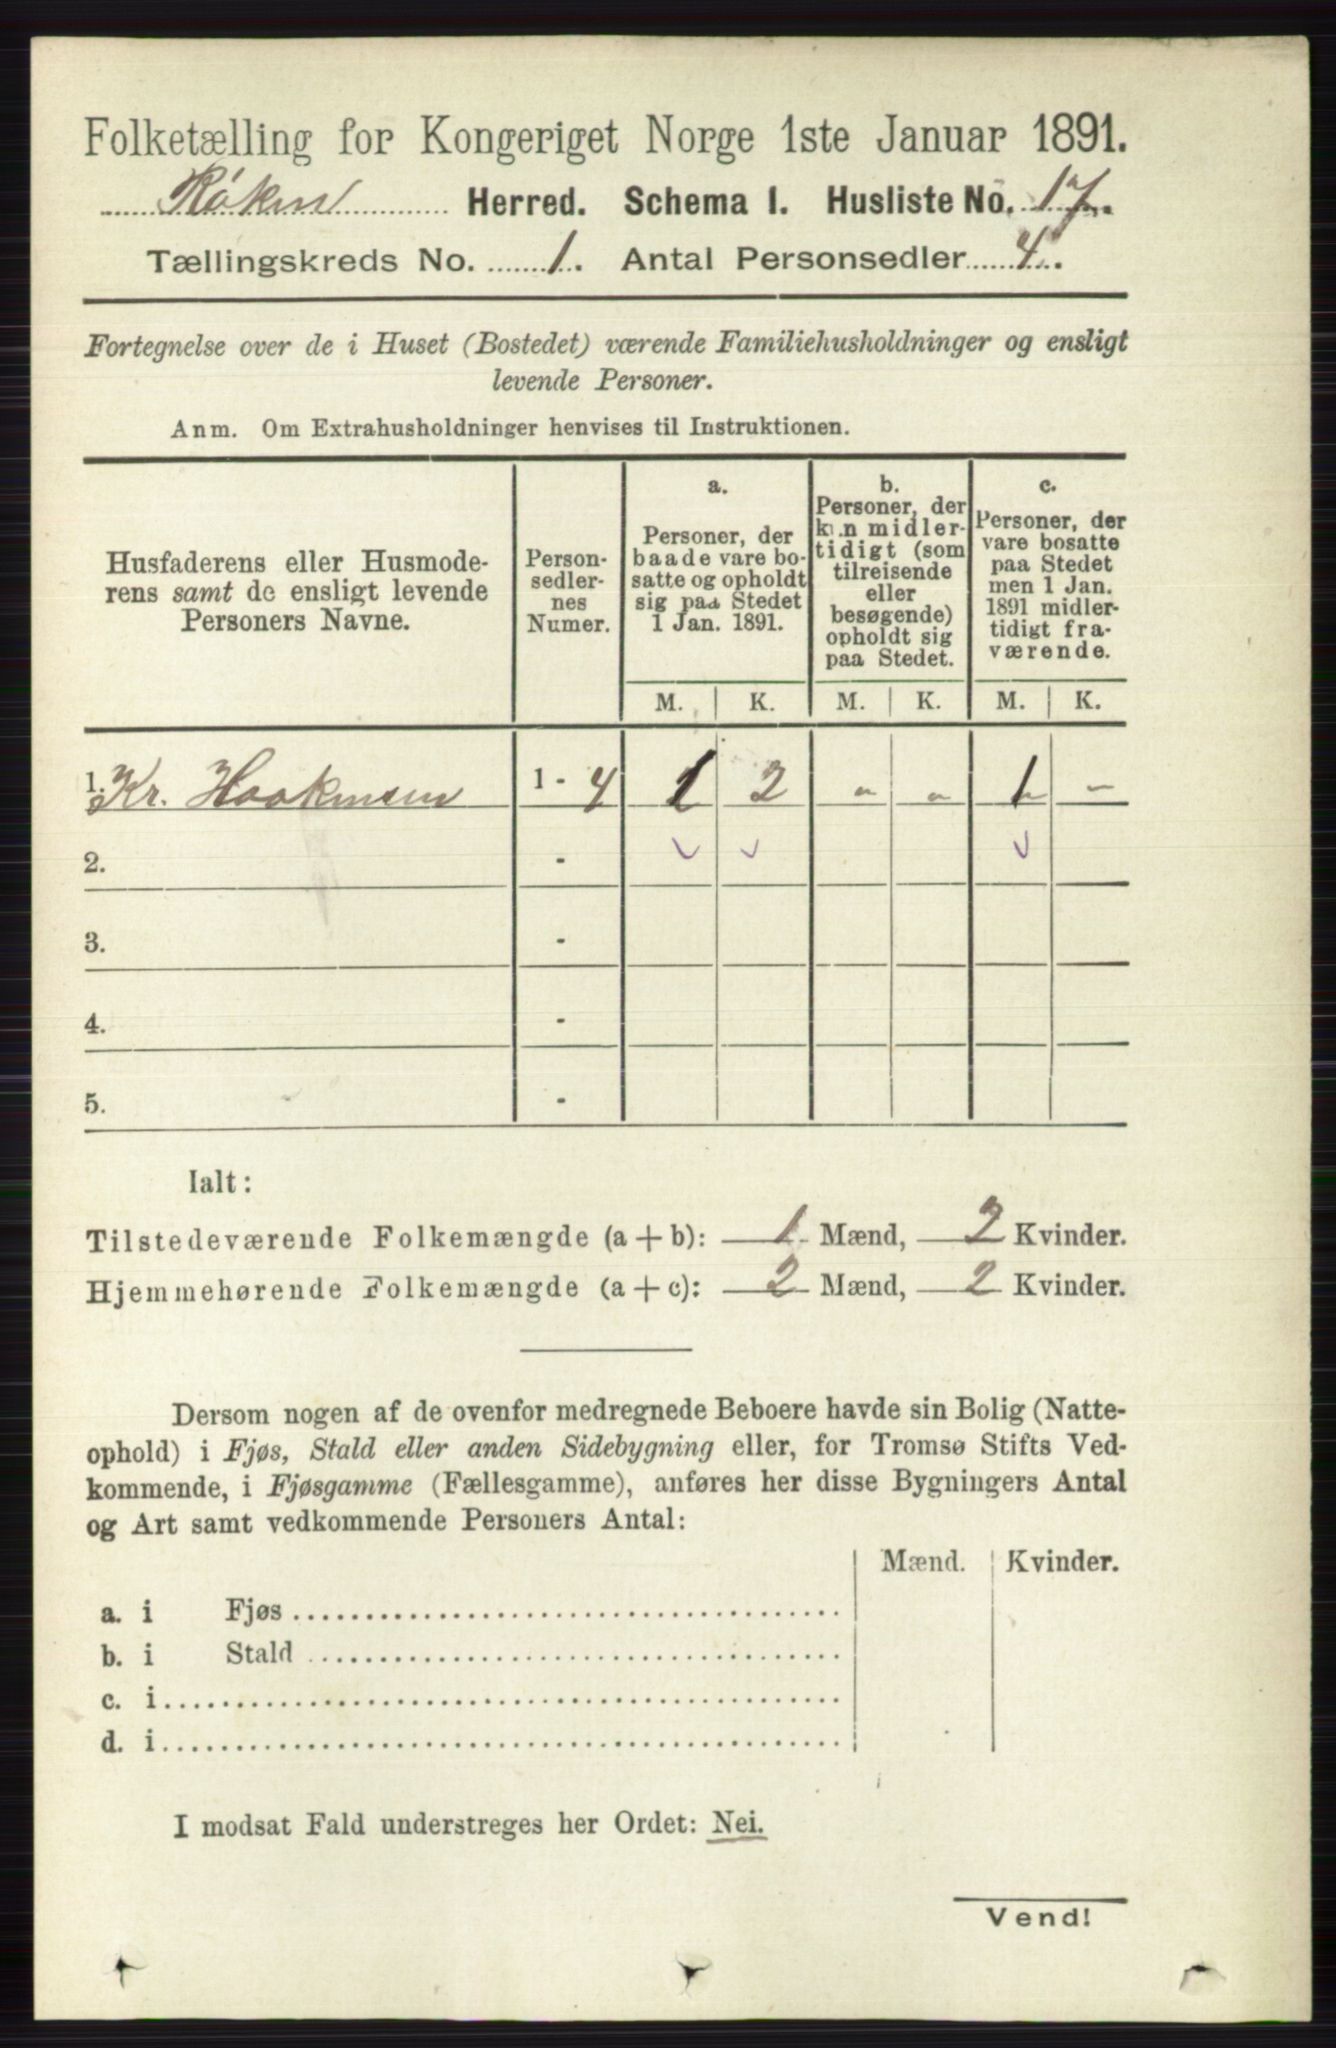 Folketælling for Kongeriget Norge 1ste Januar 1891.
Røken Herred. Schema I. Husliste No. 17.
Tællingskreds No. 1. Antal Personsedler 4.
Fortegnelse over de i Huset (Bostedet) værende Familiehusholdninger og ensligt
levende Personer.
Anm. Om Extrahusholdninger henvises til Instruktionen.
Husfaderens eller Husmode-
rens samt de ensligt levende
Personers Navne.
Person-
sedler-
nes
Numer.
a.
Personer, der
baade vare bo-
satte og opholdt
sig paa Stedet
1 Jan. 1891.
b.
Personer, der
kun midler-
tidigt (som
tilreisende
eller
besøgende)
opholdt sig
paa Stedet.
c.
Personer, der
vare bosatte
paa Stedet
men 1 Jan.
1891 midler-
tidigt fra-
værende.
M. K. M. K. M. K.
1. Kr. Haakensen 1 - 4 1 2 - - 1 -
2. -
3. -
4. -
5. -
Ialt:
Tilstedeværende Folkemængde (a + b): 1 Mænd, 2 Kvinder.
Hjemmehørende Folkemængde (a + c): 2 Mænd, 2 Kvinder.
Dersom nogen af de ovenfor medregnede Beboere havde sin Bolig (Natte-
ophold) i Fjøs, Stald eller anden Sidebygning eller, for Tromsø Stifts Ved-
kommende, i Fjøsgamme (Fællesgamme), anføres her disse Bygningers Antal
og Art samt vedkommende Personers Antal:
Mænd. Kvinder.
a. i Fjøs
b. i Stald
c. i
d. i
I modsat Fald understreges her Ordet: Nei.
Vend!